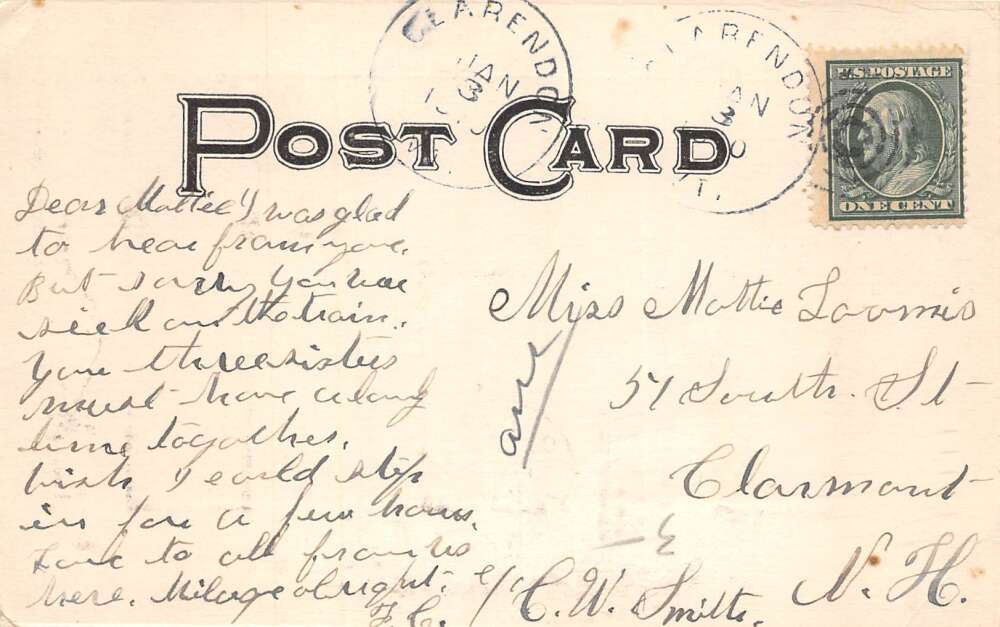 CLARENDON
JAN
3
CLARENDON
JAN
3
VT.
U.S. POSTAGE
ONE CENT
POST CARD
Dear Mattie I was glad
to hear from you.
But sorry you was
sick on the train.
You three sisters
must have a long
time together.
Wish I could step
in for a few hours.
Love to all from us
here. Milage alright.
F.C.
Miss Mattie Loomis
51 South. St
Clarmont
N. H.
c/ C. W. Smith.
ans